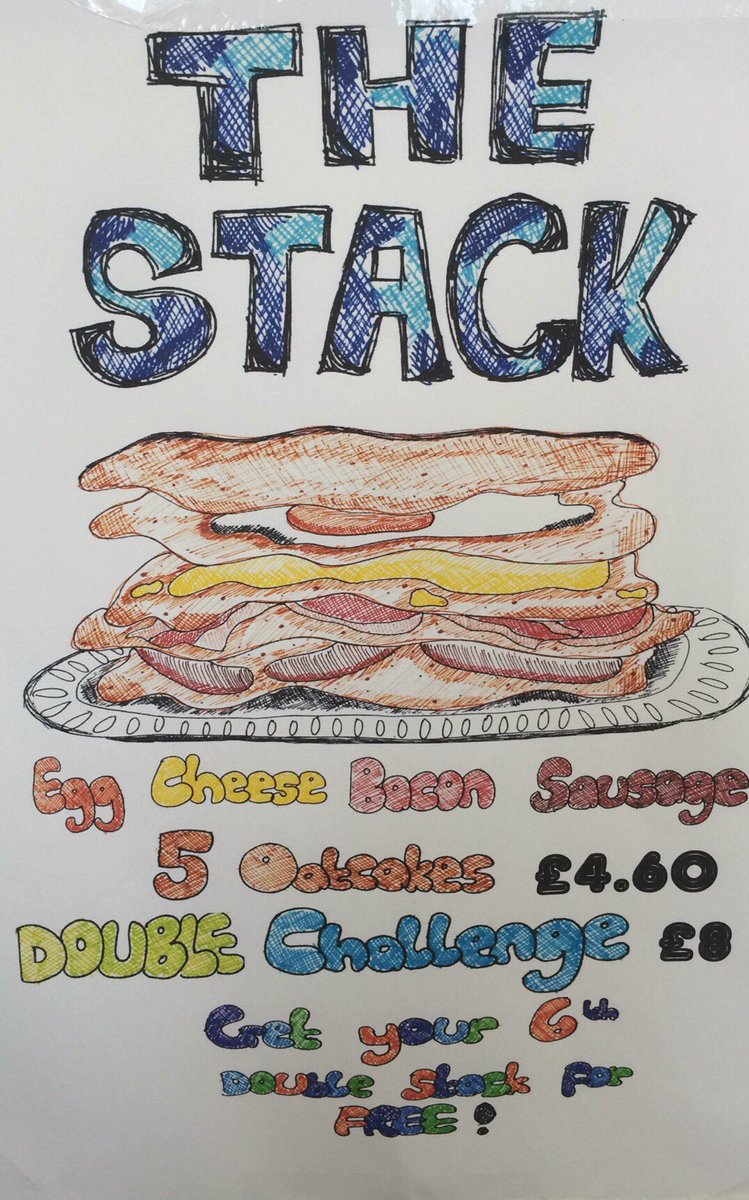 THE
STACK
Egg Cheese Bacon Sausage
5 Oatcakes £4.60
DOUBLE Challenge £8
Get your 6th
Double Stack for
FREE!